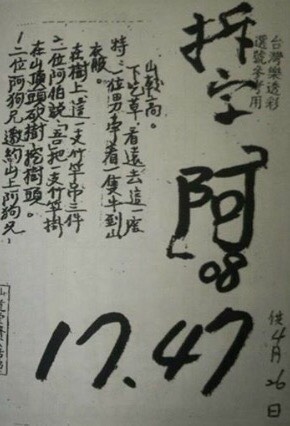 台灣樂透彩
選號參考用
拆字
「阿」
08
17.47
4月26日
二位阿狗兄邀約山上阿狗兄,
在山頂頭砍樹挖樹頭。
二位阿伯說:吾把一支竹竿掛
在樹上這一支竹竿吊三件
衣服。
特:一位男牽着一隻牛到山
下吃草,看遠去這一座
山越高。